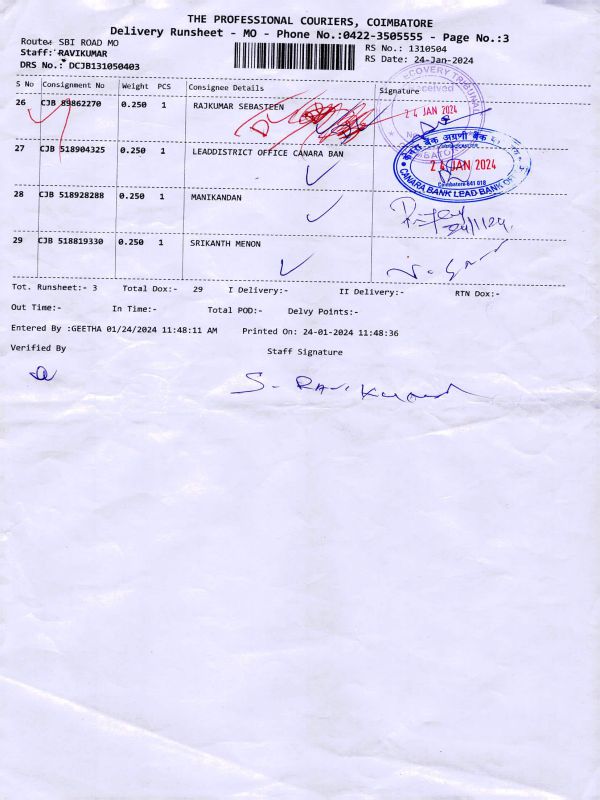 THE PROFESSIONAL COURIERS, COIMBATORE
Delivery Runsheet - MO - Phone No.:0422-3505555 - Page No.:3
Route: SBI ROAD MO
RS No.: 1310504
Staff: RAVIKUMAR
RS Date: 24-Jan-2024
DRS No.: DCJB131050403
S No Consignment No Weight PCS Consignee Details Signature
26 CJB 89862270 0.250 1 RAJKUMAR SEBASTEEN
24 JAN 2024
27 CJB 518904325 0.250 1 LEADDISTRICT OFFICE CANARA BAN
केनरा बैंक अग्रणी बैंक
24 JAN 2024
Coimbatore 641 018
CANARA BANK LEAD BANK
28 CJB 518928288 0.250 1 MANIKANDAN
24/1/24
29 CJB 518819330 0.250 1 SRIKANTH MENON
Tot. Runsheet:- 3 Total Dox:- 29 I Delivery:- II Delivery:- RTN Dox:-
Out Time:- In Time:- Total POD:- Delvy Points:-
Entered By :GEETHA 01/24/2024 11:48:11 AM Printed On: 24-01-2024 11:48:36
Verified By Staff Signature
S. RAVIKUMAR